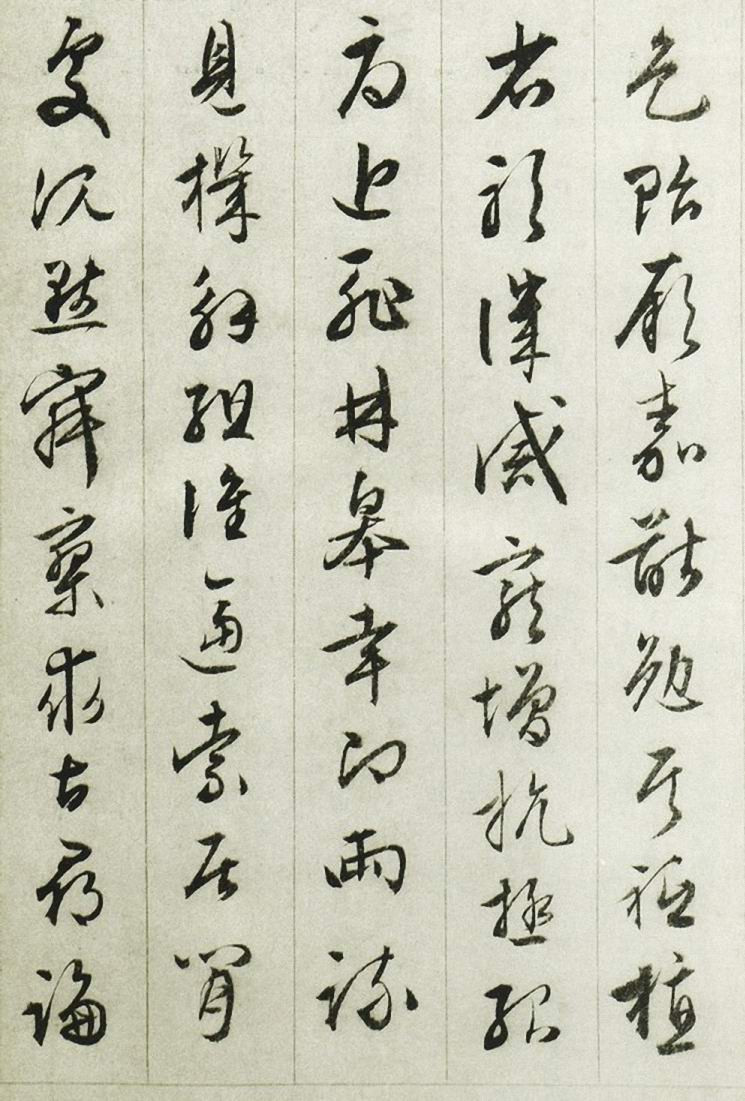 色貽厥嘉猷勉其祗植
省躬譏誡寵增抗極殆
辱近耻林皋幸即兩疏
見機解組誰逼索居閒
處沉默寂寥求古尋論